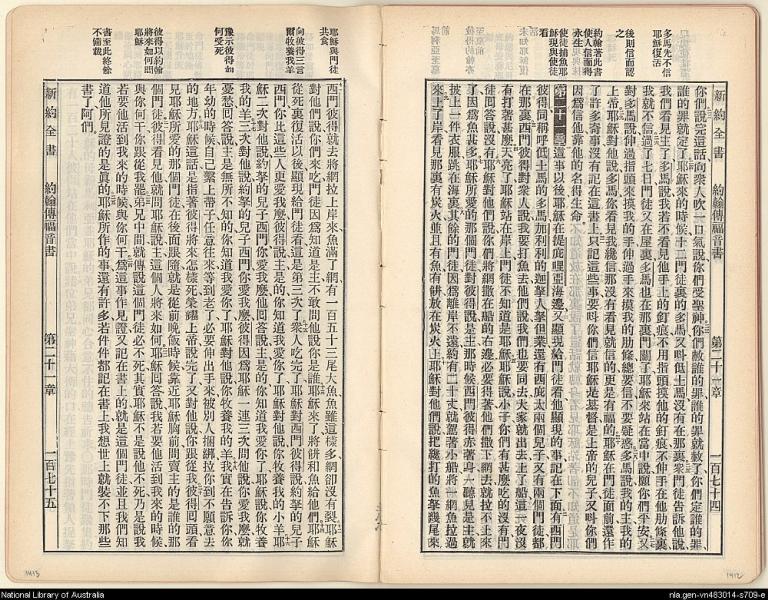 新約全書 約翰傳福音書 第二十一章 一百七十四
多馬先不信
耶穌復活
後則信而認
之
約翰著此書
使人信而得
永生
使徒捕魚耶
穌現與使徒
看
你們說完這話向衆人吹一口氣說你們受聖神你們赦誰的罪誰的罪就赦了你們定誰的罪
誰的罪就定了耶穌來的時候十二門徒裏的多馬又叫低土馬沒有在那裏衆門徒告訴他說
我們看見主了多馬說我若不看見他手上的釘痕不用指頭摸他的釘痕不伸手在他肋條裏
我就不信過了七日門徒又在屋裏多馬也在那裏門關了耶穌來站在當中說願你們平安又
對多馬說伸過指頭來摸我的手伸過手來摸我的肋條總要信不要疑惑多馬說我的主我的
上帝耶穌對他說多馬你看見我纔信那沒有看見就信的更是有福的耶穌在門徒面前還作
了許多奇事沒有記在這書上只記這些事要叫你們信耶穌是基督是上帝的兒子又叫你們
因爲信他靠他的名得生命
第二十一章這事以後耶穌在提庇哩亞海邊又顯現給門徒看他顯現的事記在下面有西門
彼得同稱呼低土馬的多馬加利利的迦拿人拿但業還有西庇太兩個兒子又有兩個門徒都
在那裏西門彼得對衆人說我要打魚去他們說我們也要同去大家就出去上了船這一夜沒
有打著甚麽天亮了耶穌站在岸上門徒不知道是耶穌耶穌說小子你們有甚麽吃的沒有門
徒回答說沒有耶穌對他們說你們將網撒在船的右邊必要得著他們撒下網去就拉不上來
了因爲魚甚多耶穌所愛的那個門徒對彼得說是主那時候西門彼得赤著身一聽見是主就
披上一件衣服跳在海裏其餘的門徒因爲離岸不遠約有二十丈就駕著小船將一網魚拉過
來上了岸看見那裏有炭火並且有魚有餅放在炭火上耶穌對他們說把纔打的魚拏幾尾來
耶穌與門徒
共食
向彼得三言
爾牧養我羊
豫示彼得如
何受死
彼得以約翰
將來如何問
耶穌
書至此終餘
不備載
西門彼得就去將網拉上岸來魚滿了網有一百五十三尾大魚魚雖這樣多網卻沒有裂耶穌
對他們說你們來吃門徒因爲知道是主不敢問他說你是誰耶穌來了將餅和魚給他們耶穌
從死裏復活以後顯現給門徒看這是第三次了衆人吃完了耶穌對西門彼得說約拏的兒子
西門你比這些人更愛我麽彼得說主是的你知道我愛你了耶穌對他說你牧養我的小羊耶
穌二次對他說約拏的兒子西門你愛我麽他回答說主是的你知道我愛你了耶穌說你牧養
我的羊三次對他說約拏的兒子西門你愛我麽彼得因爲耶穌一連三次問他說你愛我麽就
憂愁回答說主是無所不知的你知道我愛你了耶穌對他說你牧養我的羊我實在告訴你你
年幼的時候自己繫上帶子任意往來等到老了必要伸出手來被別人捆綁拉你到不願意去
的地方耶穌這話是指著彼得將來怎樣死榮耀上帝說完了又對他說你跟從我彼得回頭看
見耶穌所愛的那個門徒在後面跟隨就是從前晚飯時候靠近耶穌胸前問賣主的是誰的那
個門徒彼得看見他就問耶穌說主這個人將來如何耶穌回答說我若要他活到我來的時候
與你何干你跟從我罷弟兄中間就傳說這個門徒必不死其實耶穌不是說他不死乃是說我
若要他活到我來的時候與你何干爲這事作見證又記在書上的就是這個門徒並且我們知
道他所見證的是眞的耶穌所作的事還有許多若件件都記在書上我想世上就裝不下那些
書了阿們
新約全書 約翰傳福音書 第二十一章 一百七十五
National Library of Australia
nla.gen-vn483014-s709-e